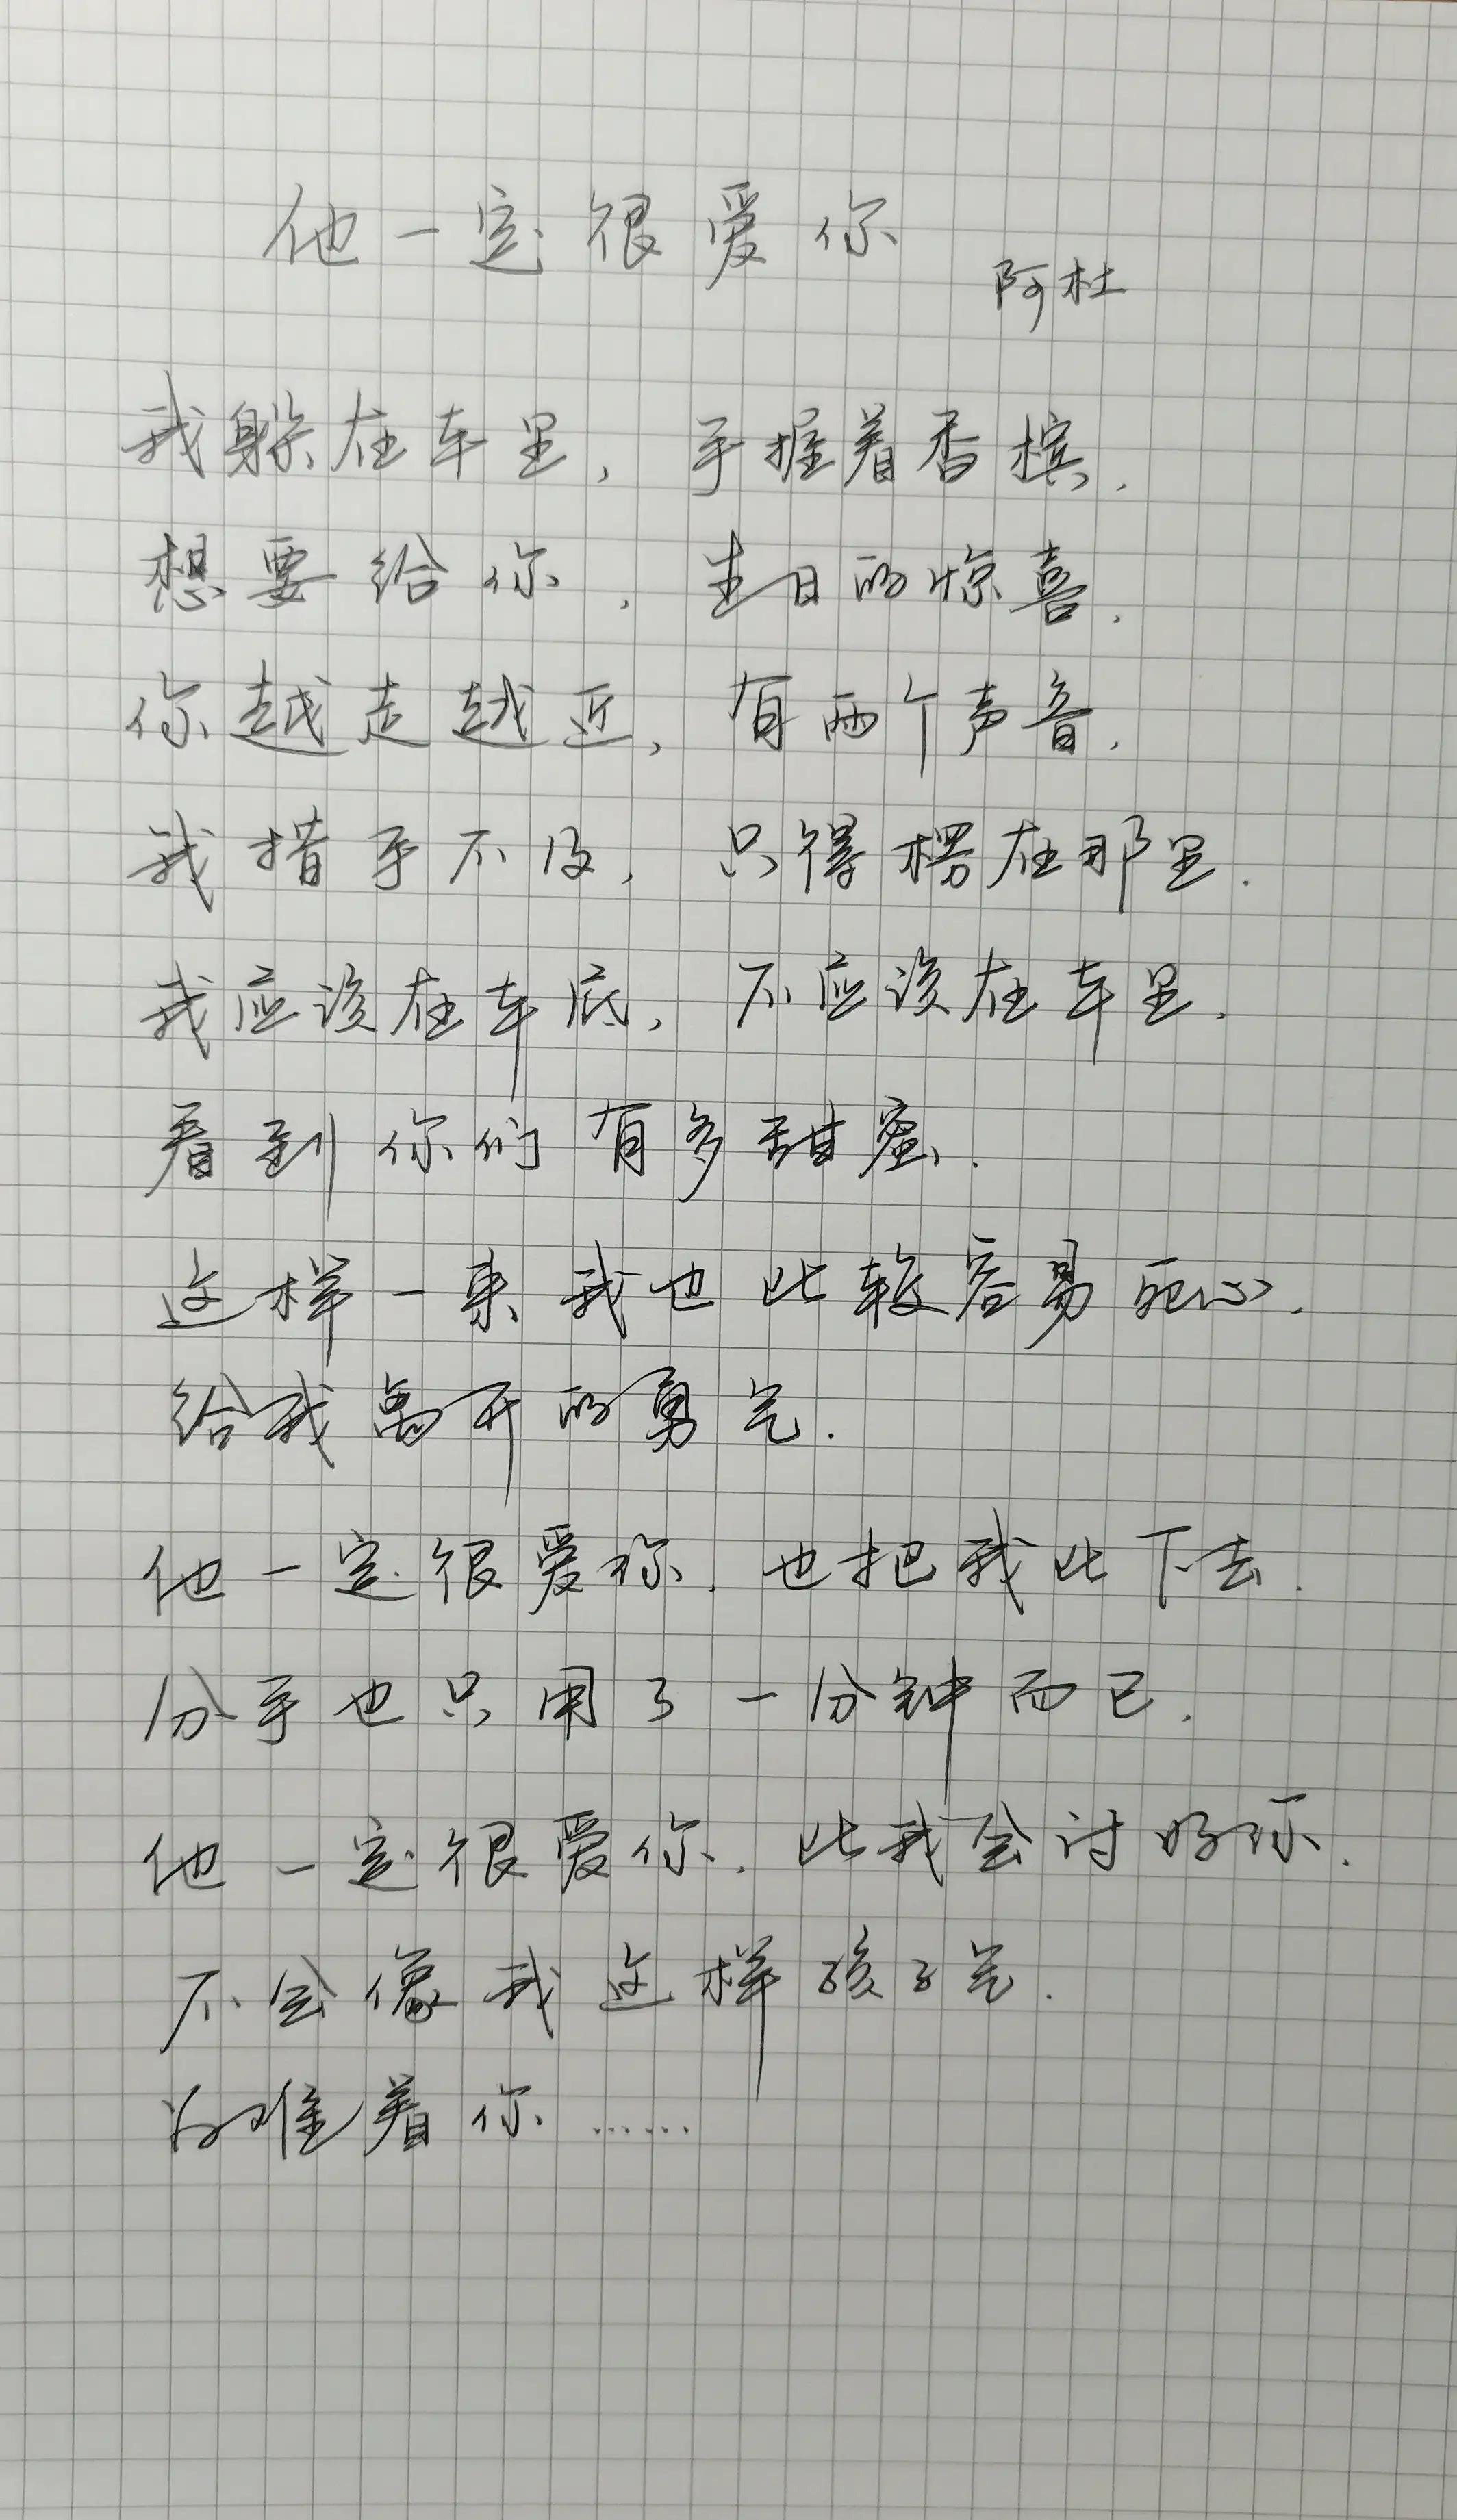 他一定很爱你
阿杜
我躲在车里，手握着香槟，
想要给你，生日的惊喜，
你越走越近，有两个声音，
我措手不及，只得楞在那里.
我应该在车底，不应该在车里，
看到你们有多甜蜜.
这样一来我也比较容易死心，
给我离开的勇气.
他一定很爱你，也把我比下去.
分手也只用了一分钟而已.
他一定很爱你，比我会讨好你.
不会像我这样孩子气.
为难着你……